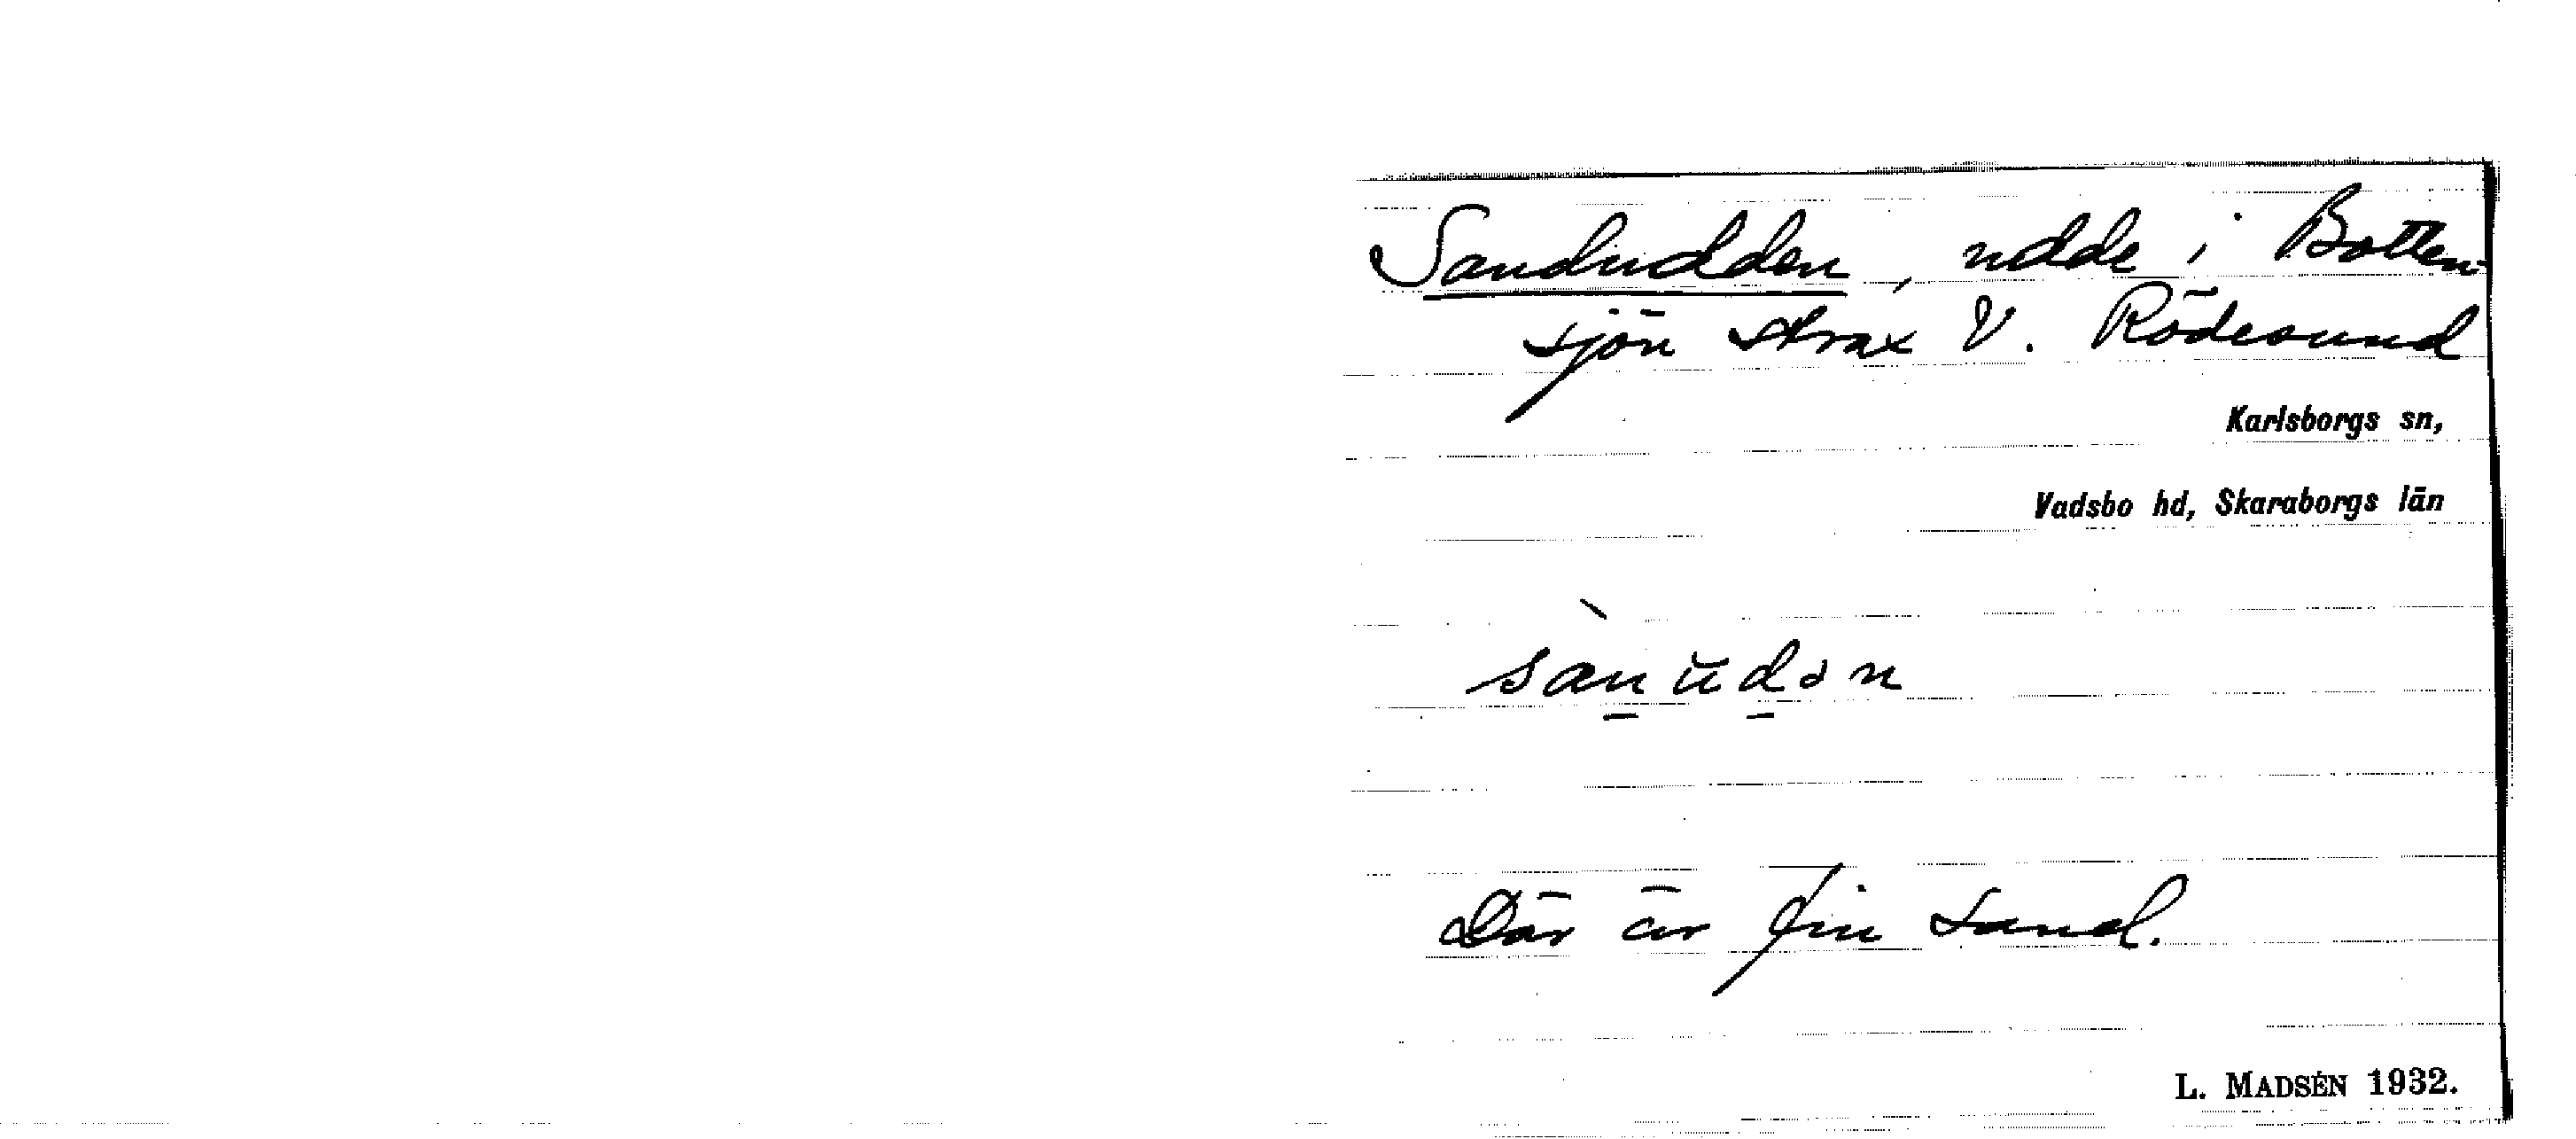 Sandudden, udde i Botten-
sjön strax V. Rödesund
Karlsborgs sn,
Vadsbo hd, Skaraborgs län
Där är fin sand.
L. MADSÉN 1932.